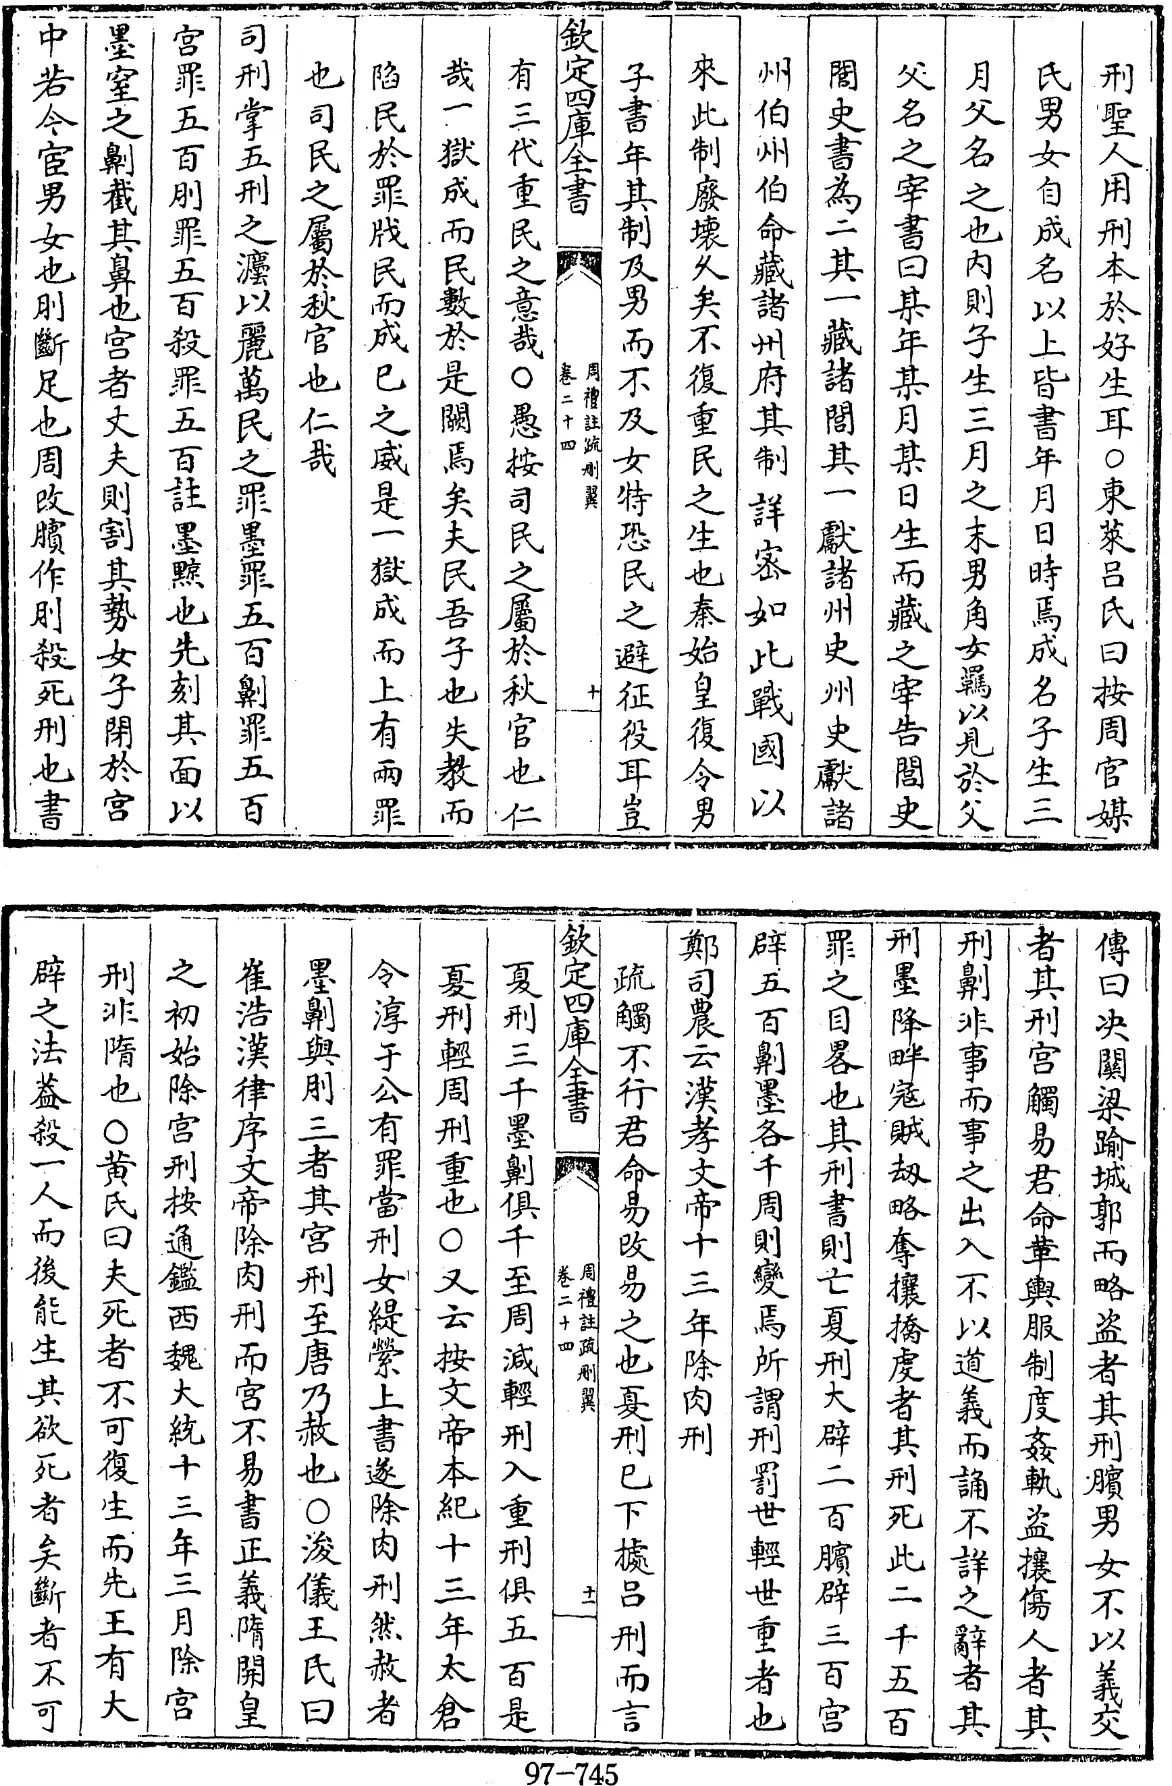 刑聖人用刑本於好生耳○東萊吕氏曰按周官媒
氏男女自成名以上皆書年月日時焉成名子生三
月父名之也内則子生三月之末男角女羈以見於父
父名之宰書曰某年某月某日生而藏之宰告閭史
閭史書為二其一藏諸閭其一獻諸州史州史獻諸
州伯州伯命藏諸州府其制詳宻如此戰國以
來此制廢壞久矣不復重民之生也秦始皇復令男
子書年其制及男而不及女特恐民之避征役耳豈
欽定四庫全書
周禮註疏刪翼
卷二十四
十
有三代重民之意哉○愚按司民之屬於秋官也仁
哉一獄成而民數於是闕焉矣夫民吾子也失教而
陷民於罪戕民而成已之威是一獄成而上有兩罪
也司民之屬於秋官也仁哉
司刑掌五刑之灋以麗萬民之罪墨罪五百劓罪五百
宫罪五百刖罪五百殺罪五百註墨黥也先刻其面以
墨窒之劓截其鼻也宫者丈夫則割其勢女子閉於宫
中若今宦男女也刖斷足也周改臏作刖殺死刑也書
傳曰决關梁踰城郭而略盗者其刑臏男女不以義交
者其刑宫觸易君命革輿服制度姦軌盗攘傷人者其
刑劓非事而事之出入不以道義而誦不詳之辭者其
刑墨降畔寇賊刼略奪攘撟虔者其刑死此二千五百
罪之目畧也其刑書則亡夏刑大辟二百臏辟三百宫
辟五百劓墨各千周則變焉所謂刑罰世輕世重者也
鄭司農云漢孝文帝十三年除肉刑
疏觸不行君命易改易之也夏刑已下據吕刑而言
欽定四庫全書
周禮註疏刪翼
卷二十四
十一
夏刑三千墨劓俱千至周減輕刑入重刑俱五百是
夏刑輕周刑重也○又云按文帝本紀十三年太倉
令淳于公有罪當刑女緹縈上書遂除肉刑然赦者
墨劓與刖三者其宫刑至唐乃赦也○浚儀王氏曰
崔浩漢律序文帝除肉刑而宫不易書正義隋開皇
之初始除宫刑按通鑑西魏大統十三年三月除宫
刑非隋也○黄氏曰夫死者不可復生而先王有大
辟之法葢殺一人而後能生其欲死者矣斷者不可
97-745